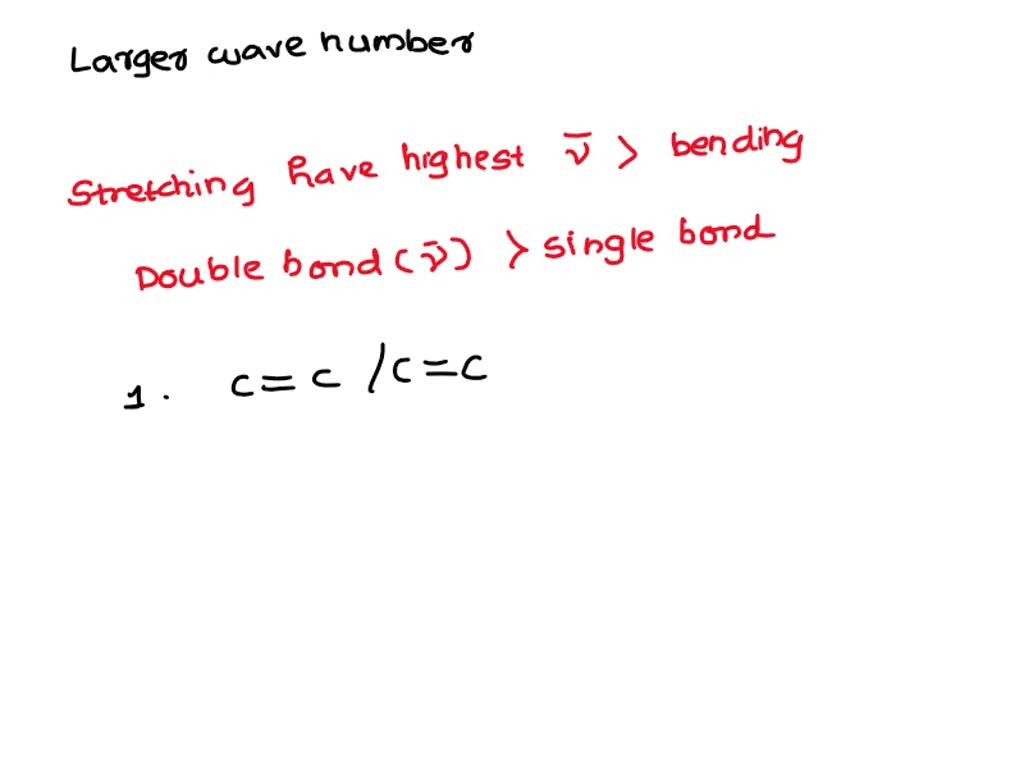 Larger wave number
Stretching have highest ν̅ > bending
Double bond (ν̅) > single bond
1. c=c /c=c